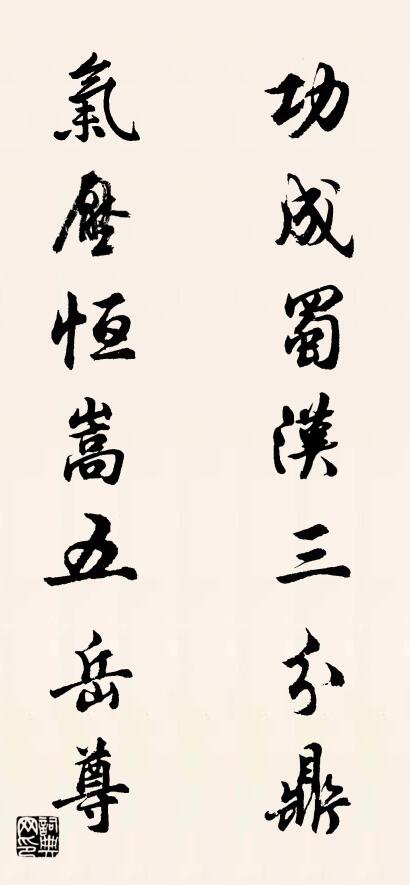 功成蜀漢三分鼎
氣壓恒嵩五岳尊
詞典網印